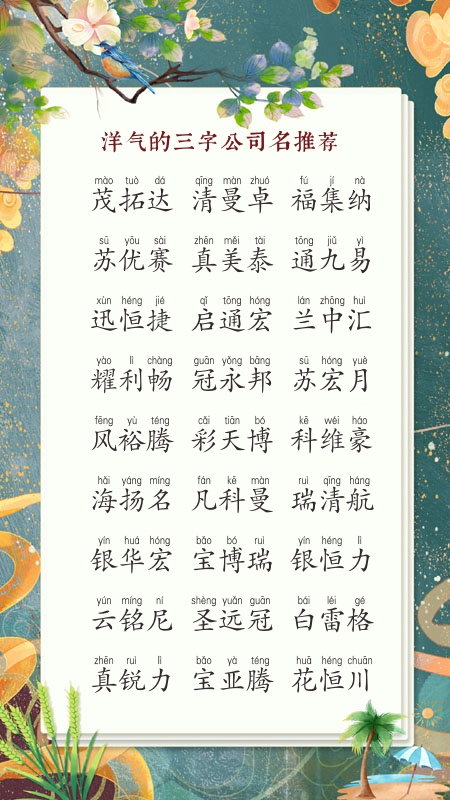 洋气的三字公司名推荐
mào tuò dá qīng màn zhuó fú jí nà
茂拓达 清曼卓 福集纳
sū yōu sài zhēn měi tài tōng jiǔ yì
苏优赛 真美泰 通九易
xùn héng jié qǐ tōng hóng lán zhōng huì
迅恒捷 启通宏 兰中汇
yào lì chàng guān yǒng bāng sū hóng yuè
耀利畅 冠永邦 苏宏月
fēng yù téng cǎi tiān bó kē wéi háo
风裕腾 彩天博 科维豪
hǎi yáng míng fán kē màn ruì qīng háng
海扬名 凡科曼 瑞清航
yín huá hóng bǎo bó ruì yín héng lì
银华宏 宝博瑞 银恒力
yún míng ní shèng yuǎn guān bái léi gé
云铭尼 圣远冠 白雷格
zhēn ruì lì bǎo yà téng huā héng chuān
真锐力 宝亚腾 花恒川